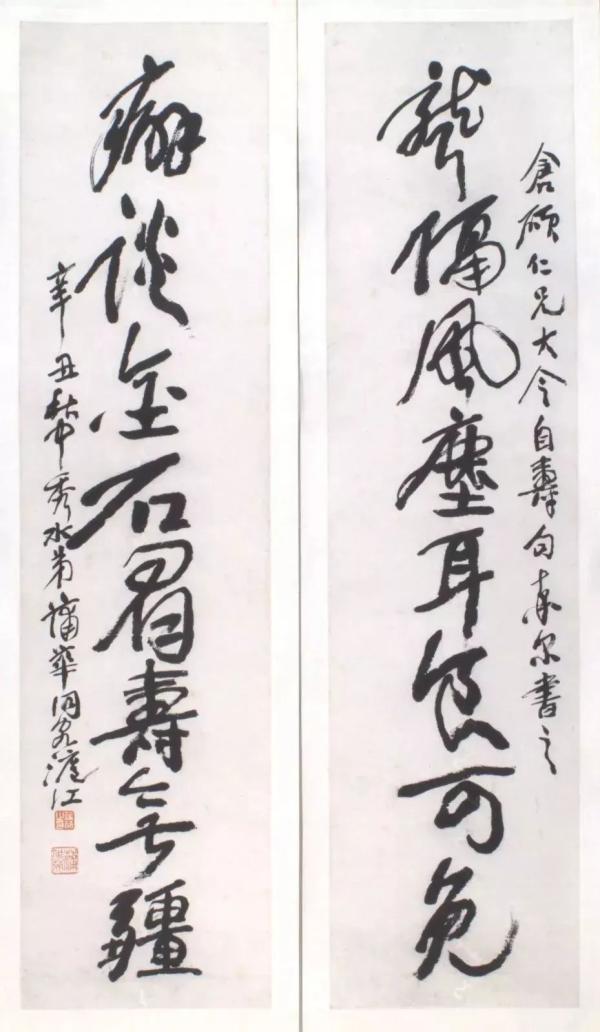 倉碩仁兄大令自壽句率尔書之
聾隔風塵耳食可免
癖談金石眉壽無疆
辛丑秋中秀水弟蒲華同客滬江